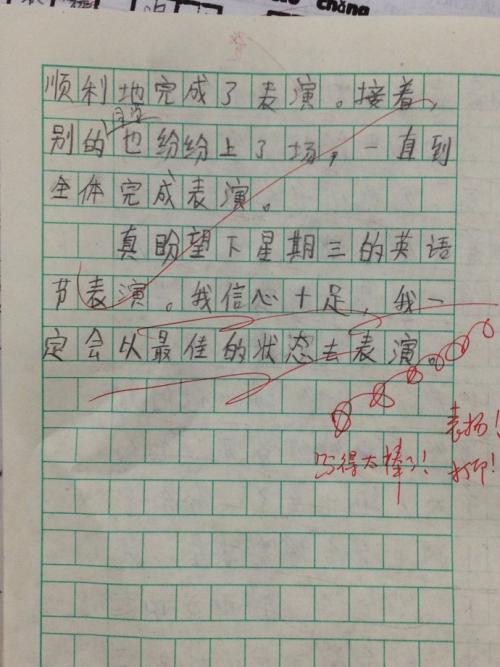 chǎng
顺利地完成了表演。接着，
同学
别的也纷纷上了场，一直到
全体完成表演。
真盼望下星期三的英语
节表演。我信心十足，我一
定会以最佳的状态去表演。
表扬！
写得太棒了！
打印！